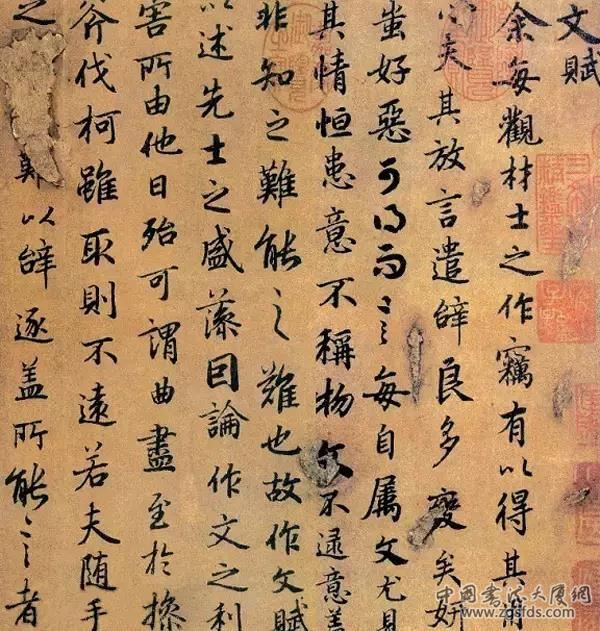 文賦
余每觀材士之作竊有以得其用
心夫其放言遣辭良多變矣妍
蚩好惡可得而言每自属文尤見
其情恒患意不稱物文不逮意盖
非知之難能之難也故作文賦
以述先士之盛藻因論作文之利
害所由他日殆可謂曲盡至於操
斧伐柯雖取則不遠若夫随手
之難以辭逐盖所能言者
中國書法大厦網
www.zgsfds.com